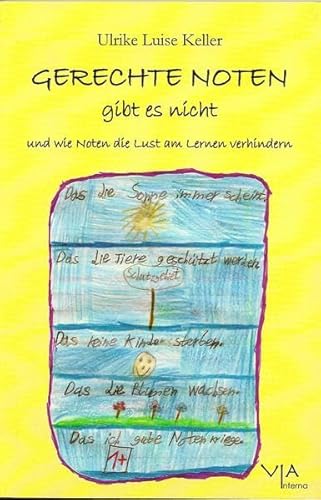 Ulrike Luise Keller
GERECHTE NOTEN
gibt es nicht
und wie Noten die Lust am Lernen verhindern
Das die Sonne immer scheint.
Das die Tiere geschützt werden.
Schutzgebiet
Das keine Kinder sterben.
Das die Blumen wachsen.
Das ich gute Noten kriege.
1+
VIA
Interna